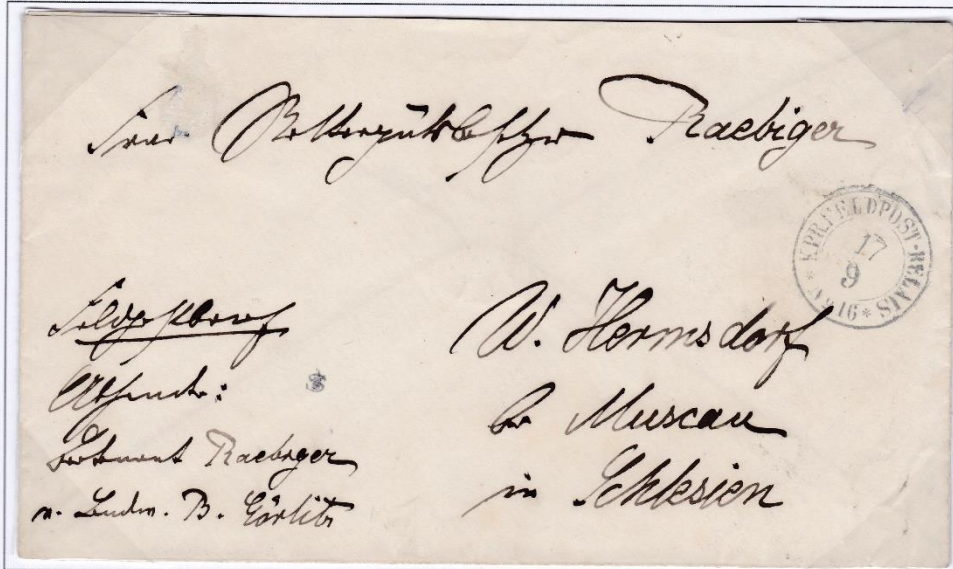 Frau Rittergutsbesitzer Raebiger
K.PR.FELDPOST-RELAIS
17
9
* No 16 *
Feldpostbrief
Absender:
Leutnant Raebiger
v. Landw. B. Görlitz
W. Hermsdorf
bei Muscau
in Schlesien